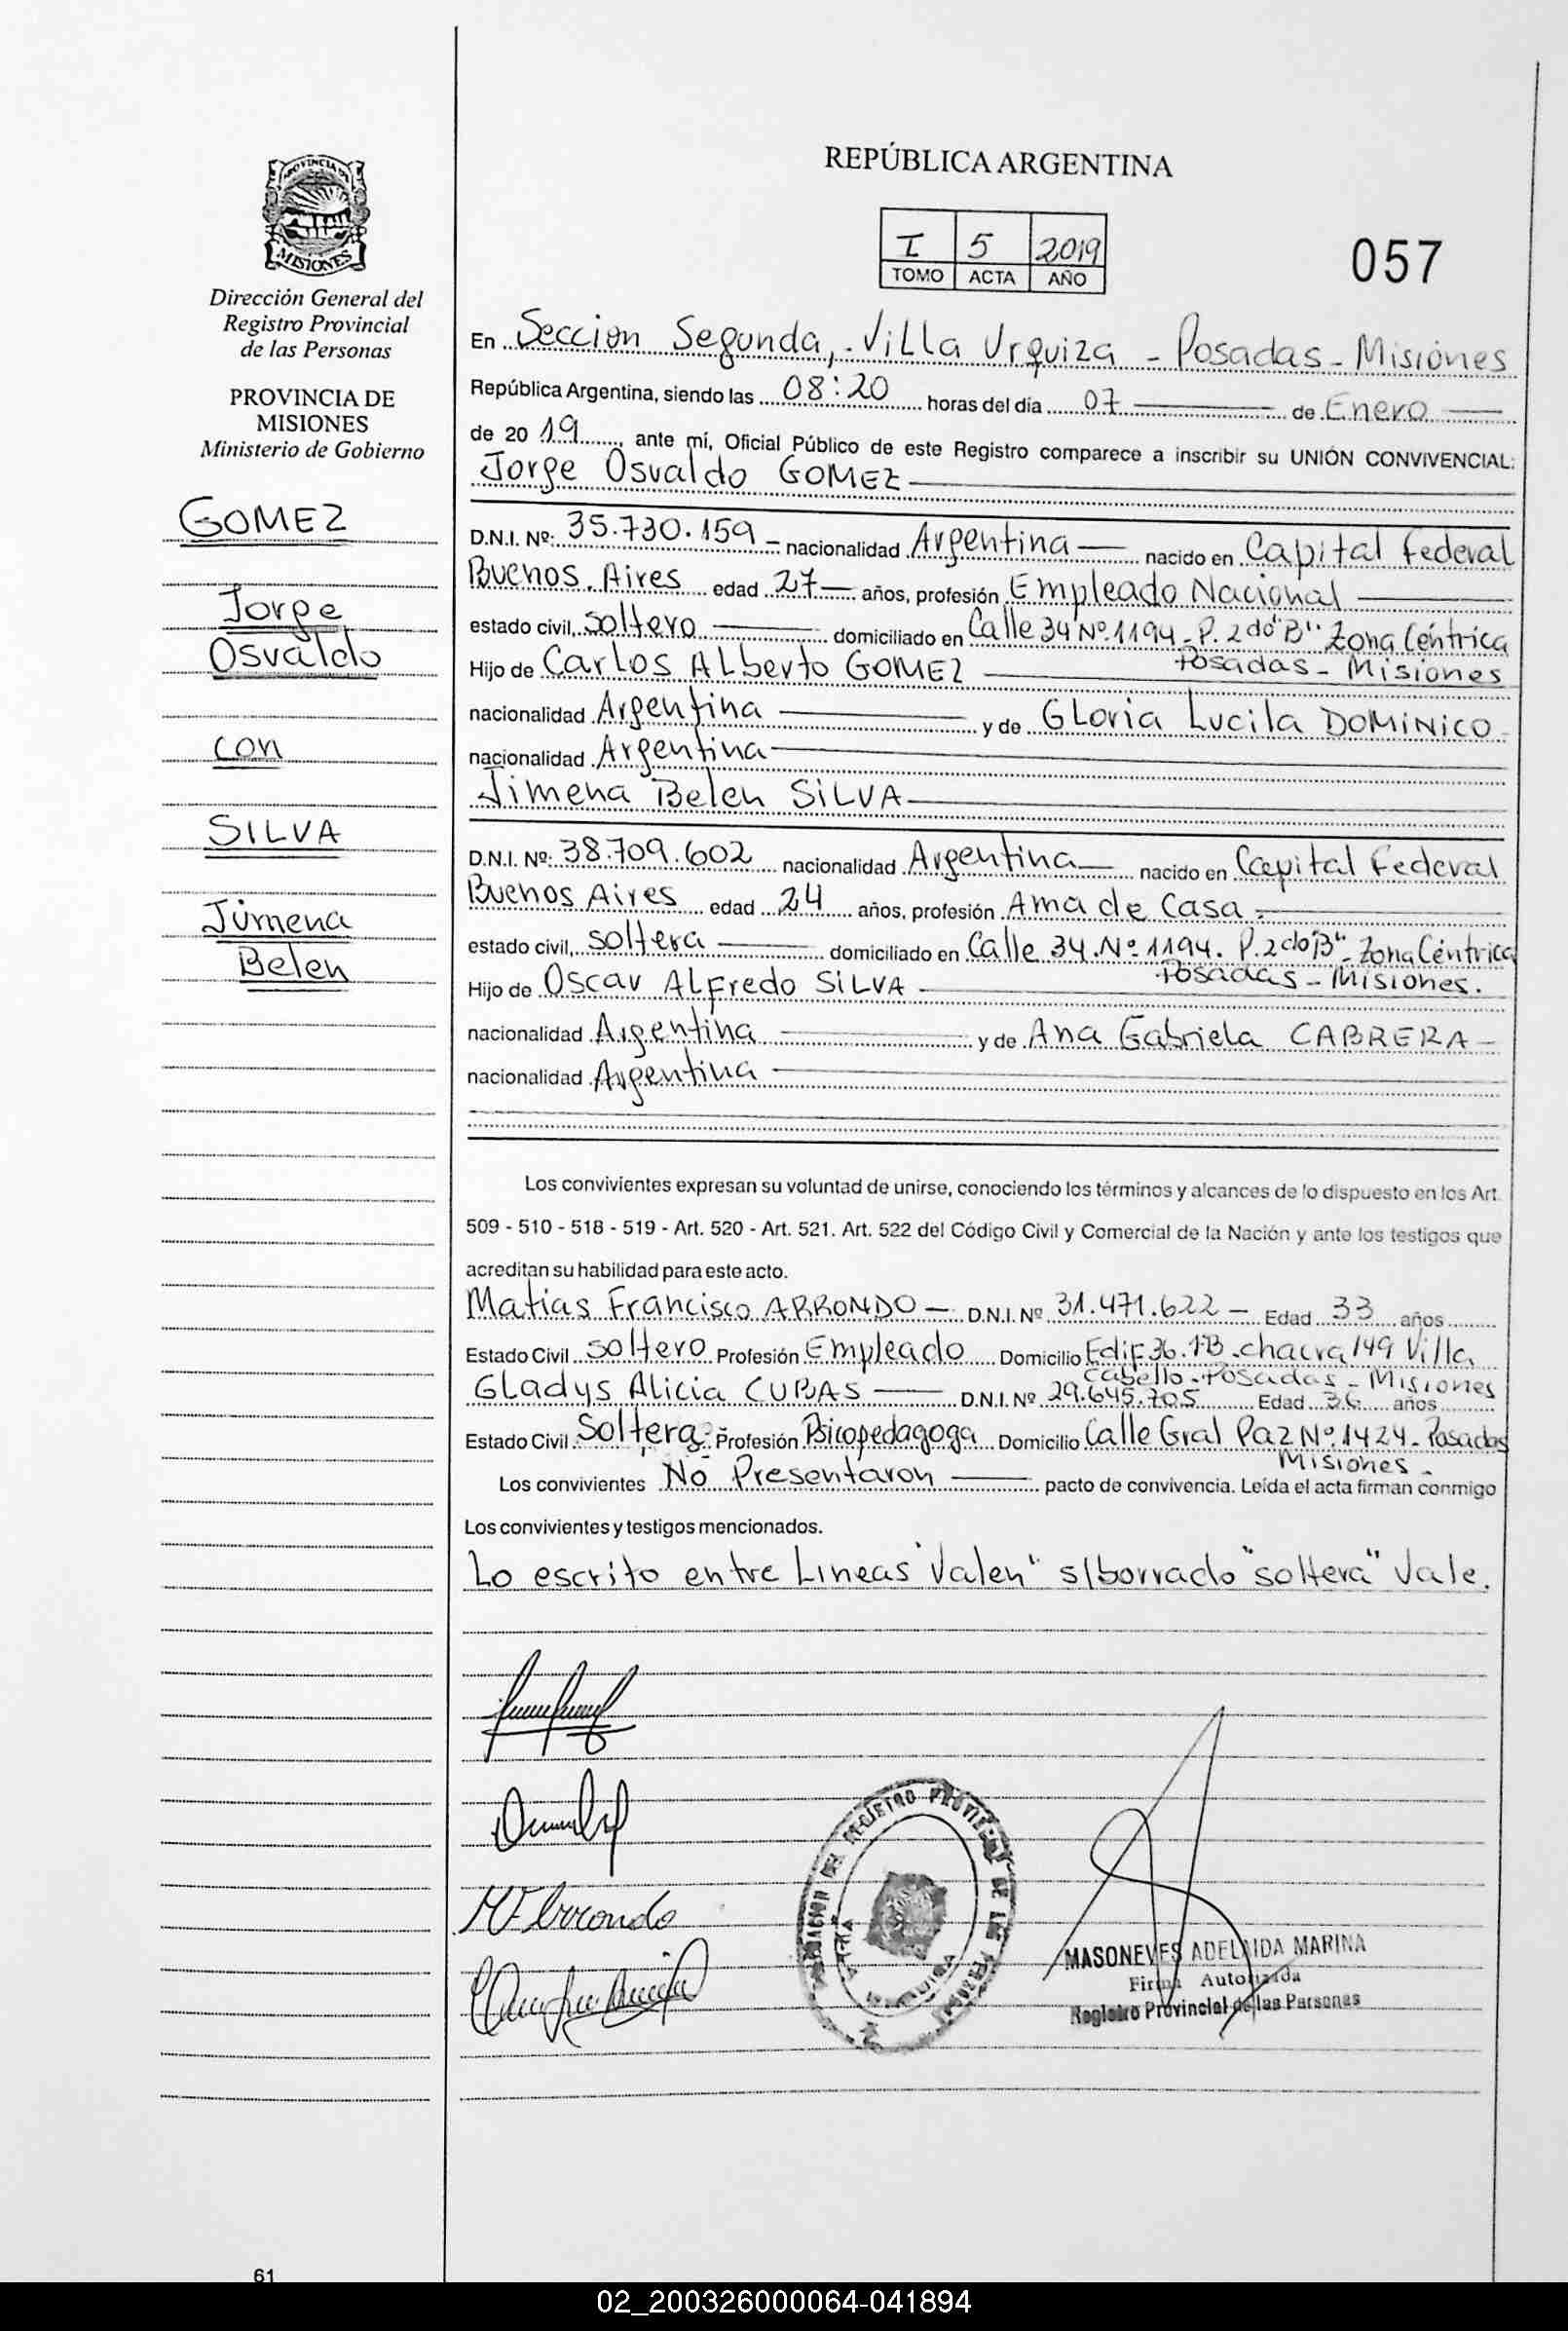 PROVINCIA DE
MISIONES
Dirección General del
Registro Provincial
de las Personas
PROVINCIA DE
MISIONES
Ministerio de Gobierno
GOMEZ
Jorge
Osvaldo
con
SILVA
Jimena
Belen
61
REPÚBLICA ARGENTINA
I 5 2019
TOMO ACTA AÑO
057
En Seccion Segunda, Villa Urquiza - Posadas - Misiones
República Argentina, siendo las 08:20 horas del día 07 de Enero
de 20 19, ante mí, Oficial Público de este Registro comparece a inscribir su UNIÓN CONVIVENCIAL:
Jorge Osvaldo GOMEZ
D.N.I. Nº: 35.730.159 - nacionalidad Argentina nacido en Capital Federal
Buenos Aires edad 27 años, profesión Empleado Nacional
estado civil, soltero domiciliado en Calle 34 Nº 1194 - P. 2do "B" Zona Céntrica
Posadas - Misiones
Hijo de Carlos Alberto GOMEZ
nacionalidad Argentina y de Gloria Lucila DOMINICO -
nacionalidad Argentina
Jimena Belen SILVA
D.N.I. Nº: 38.709.602 nacionalidad Argentina nacido en Capital Federal
Buenos Aires edad 24 años, profesión Ama de Casa
estado civil, soltera domiciliado en Calle 34 Nº 1194. P. 2do "B" - Zona Céntrica
Posadas - Misiones.
Hijo de Oscar Alfredo SILVA
nacionalidad Argentina y de Ana Gabriela CABRERA -
nacionalidad Argentina
Los convivientes expresan su voluntad de unirse, conociendo los términos y alcances de lo dispuesto en los Art.
509 - 510 - 518 - 519 - Art. 520 - Art. 521. Art. 522 del Código Civil y Comercial de la Nación y ante los testigos que
acreditan su habilidad para este acto.
Matias Francisco ARRONDO - D.N.I. Nº 31.471.622 - Edad 33 años
Estado Civil soltero Profesión Empleado Domicilio Edif 36. 1B. chacra 149 Villa
Cabello - Posadas - Misiones
Gladys Alicia CUBAS D.N.I. Nº 29.645.705 Edad 36 años
Estado Civil Soltera Profesión Psicopedagoga Domicilio Calle Gral Paz Nº 1424 - Posadas
Misiones -
Los convivientes No Presentaron pacto de convivencia. Leída el acta firman conmigo
Los convivientes y testigos mencionados.
Lo escrito entre Lineas "Valen" s/borrado "soltera" Vale.
MF Arrondo
MASONEVES ADELAIDA MARINA
Firma Autorizada
Registro Provincial de las Personas
02_200326000064-041894